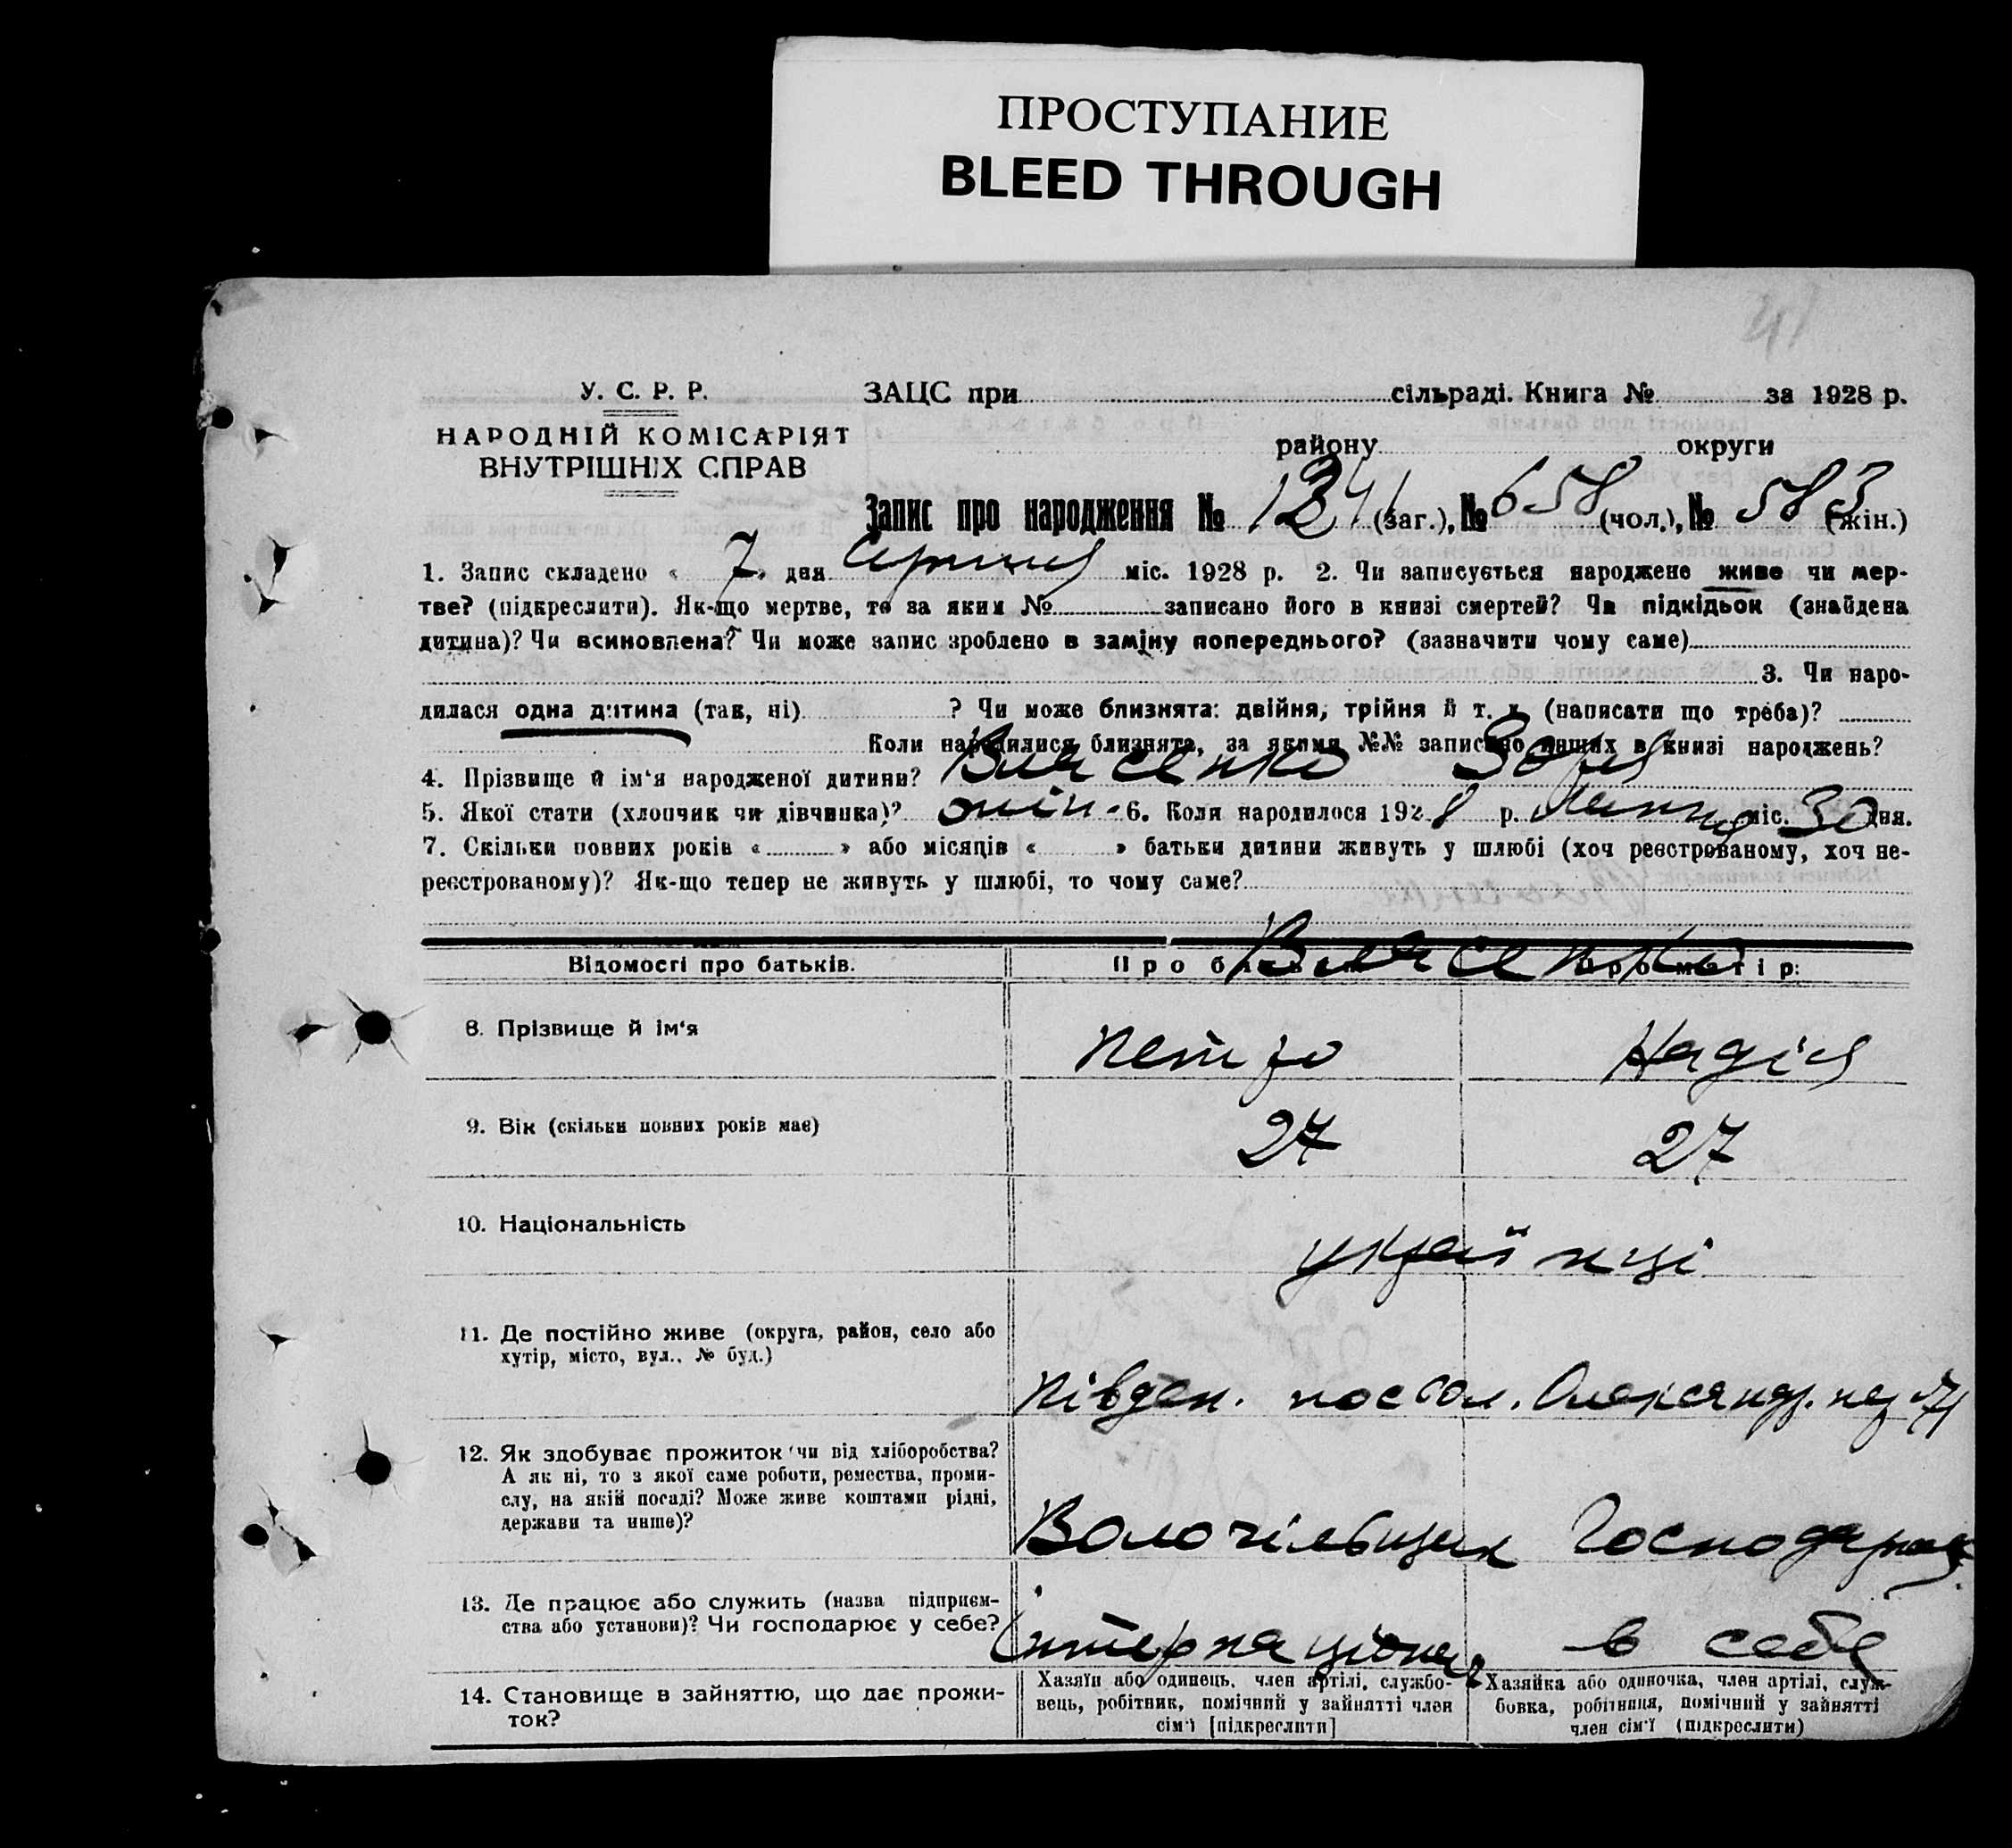 ПРОСТУПАНИЕ
BLEED THROUGH
41
У. С. Р. Р.
НАРОДНІЙ КОМІСАРІЯТ
ВНУТРІШНІХ СПРАВ
ЗАЦС при сільраді. Книга № за 1928 р.
району округи
Запис про народження № 1241 (заг.), № 658 (чол.), № 583 (жін.)
1. Запис складено « 7 » дня Серпня міс. 1928 р. 2. Чи записується народжене живе чи мер-
тве? (підкреслити). Як-що мертве, то за яким № записано його в книзі смертей? Чи підкідьок (знайдена
дитина)? Чи всиновлена? Чи може запис зроблено в заміну попереднього? (зазначити чому саме)
3. Чи наро-
дилася одна дитина (так, ні) ? Чи може близнята: двійня, трійня й т. и. (написати що треба)?
Коли народилися близнята, за якими №№ записано инших в книзі народжень?
4. Прізвище й ім'я народженої дитини? Власенко Зоя
5. Якої стати (хлопчик чи дівчинка)? жін. 6. Коли народилося 1928 р. Липня міс. 30 дня.
7. Скільки повних років « » або місяців « » батьки дитини живуть у шлюбі (хоч реєстрованому, хоч не-
реєстрованому)? Як-що тепер не живуть у шлюбі, то чому саме?
Відомості про батьків. Про батька: Про матір:
Власенко
8. Прізвище й ім'я Петро Надія
9. Вік (скільки повних років має) 27 27
10. Національність українці
11. Де постійно живе (округа, район, село або
хутір, місто, вул., № буд.)
Півден. посьол. Олександр.
12. Як здобуває прожиток чи від хліборобства?
А як ні, то з якої саме роботи, ремества, проми-
слу, на якій посаді? Може живе коштами рідні,
держави та инше)?
Волочільщик Господарка
13. Де працює або служить (назва підприєм-
ства або установи)? Чи господарює у себе?
Інтернаціонал в себе
14. Становище в зайняттю, що дає прожи-
ток?
Хазяїн або одинець, член артілі, службо-
вець, робітник, помічний у зайнятті член
сім'ї [підкреслити]
Хазяйка або одиночка, член артілі, служ-
бовка, робітниця, помічний у зайнятті
член сім'ї (підкреслити)